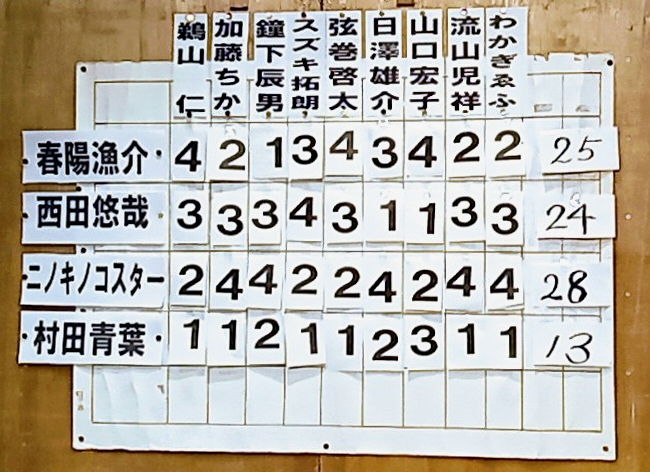 鵜山 仁 加藤ちか 鐘下辰男 スズキ拓朗 弦巻啓太 日澤雄介 山口宏子 流山児祥 わかぎゑふ
春陽漁介 4 2 1 3 4 3 4 2 2 25
西田悠哉 3 3 3 4 3 1 1 3 3 24
ニノキノコスター 2 4 4 2 2 4 2 4 4 28
村田青葉 1 1 2 1 1 2 3 1 1 13